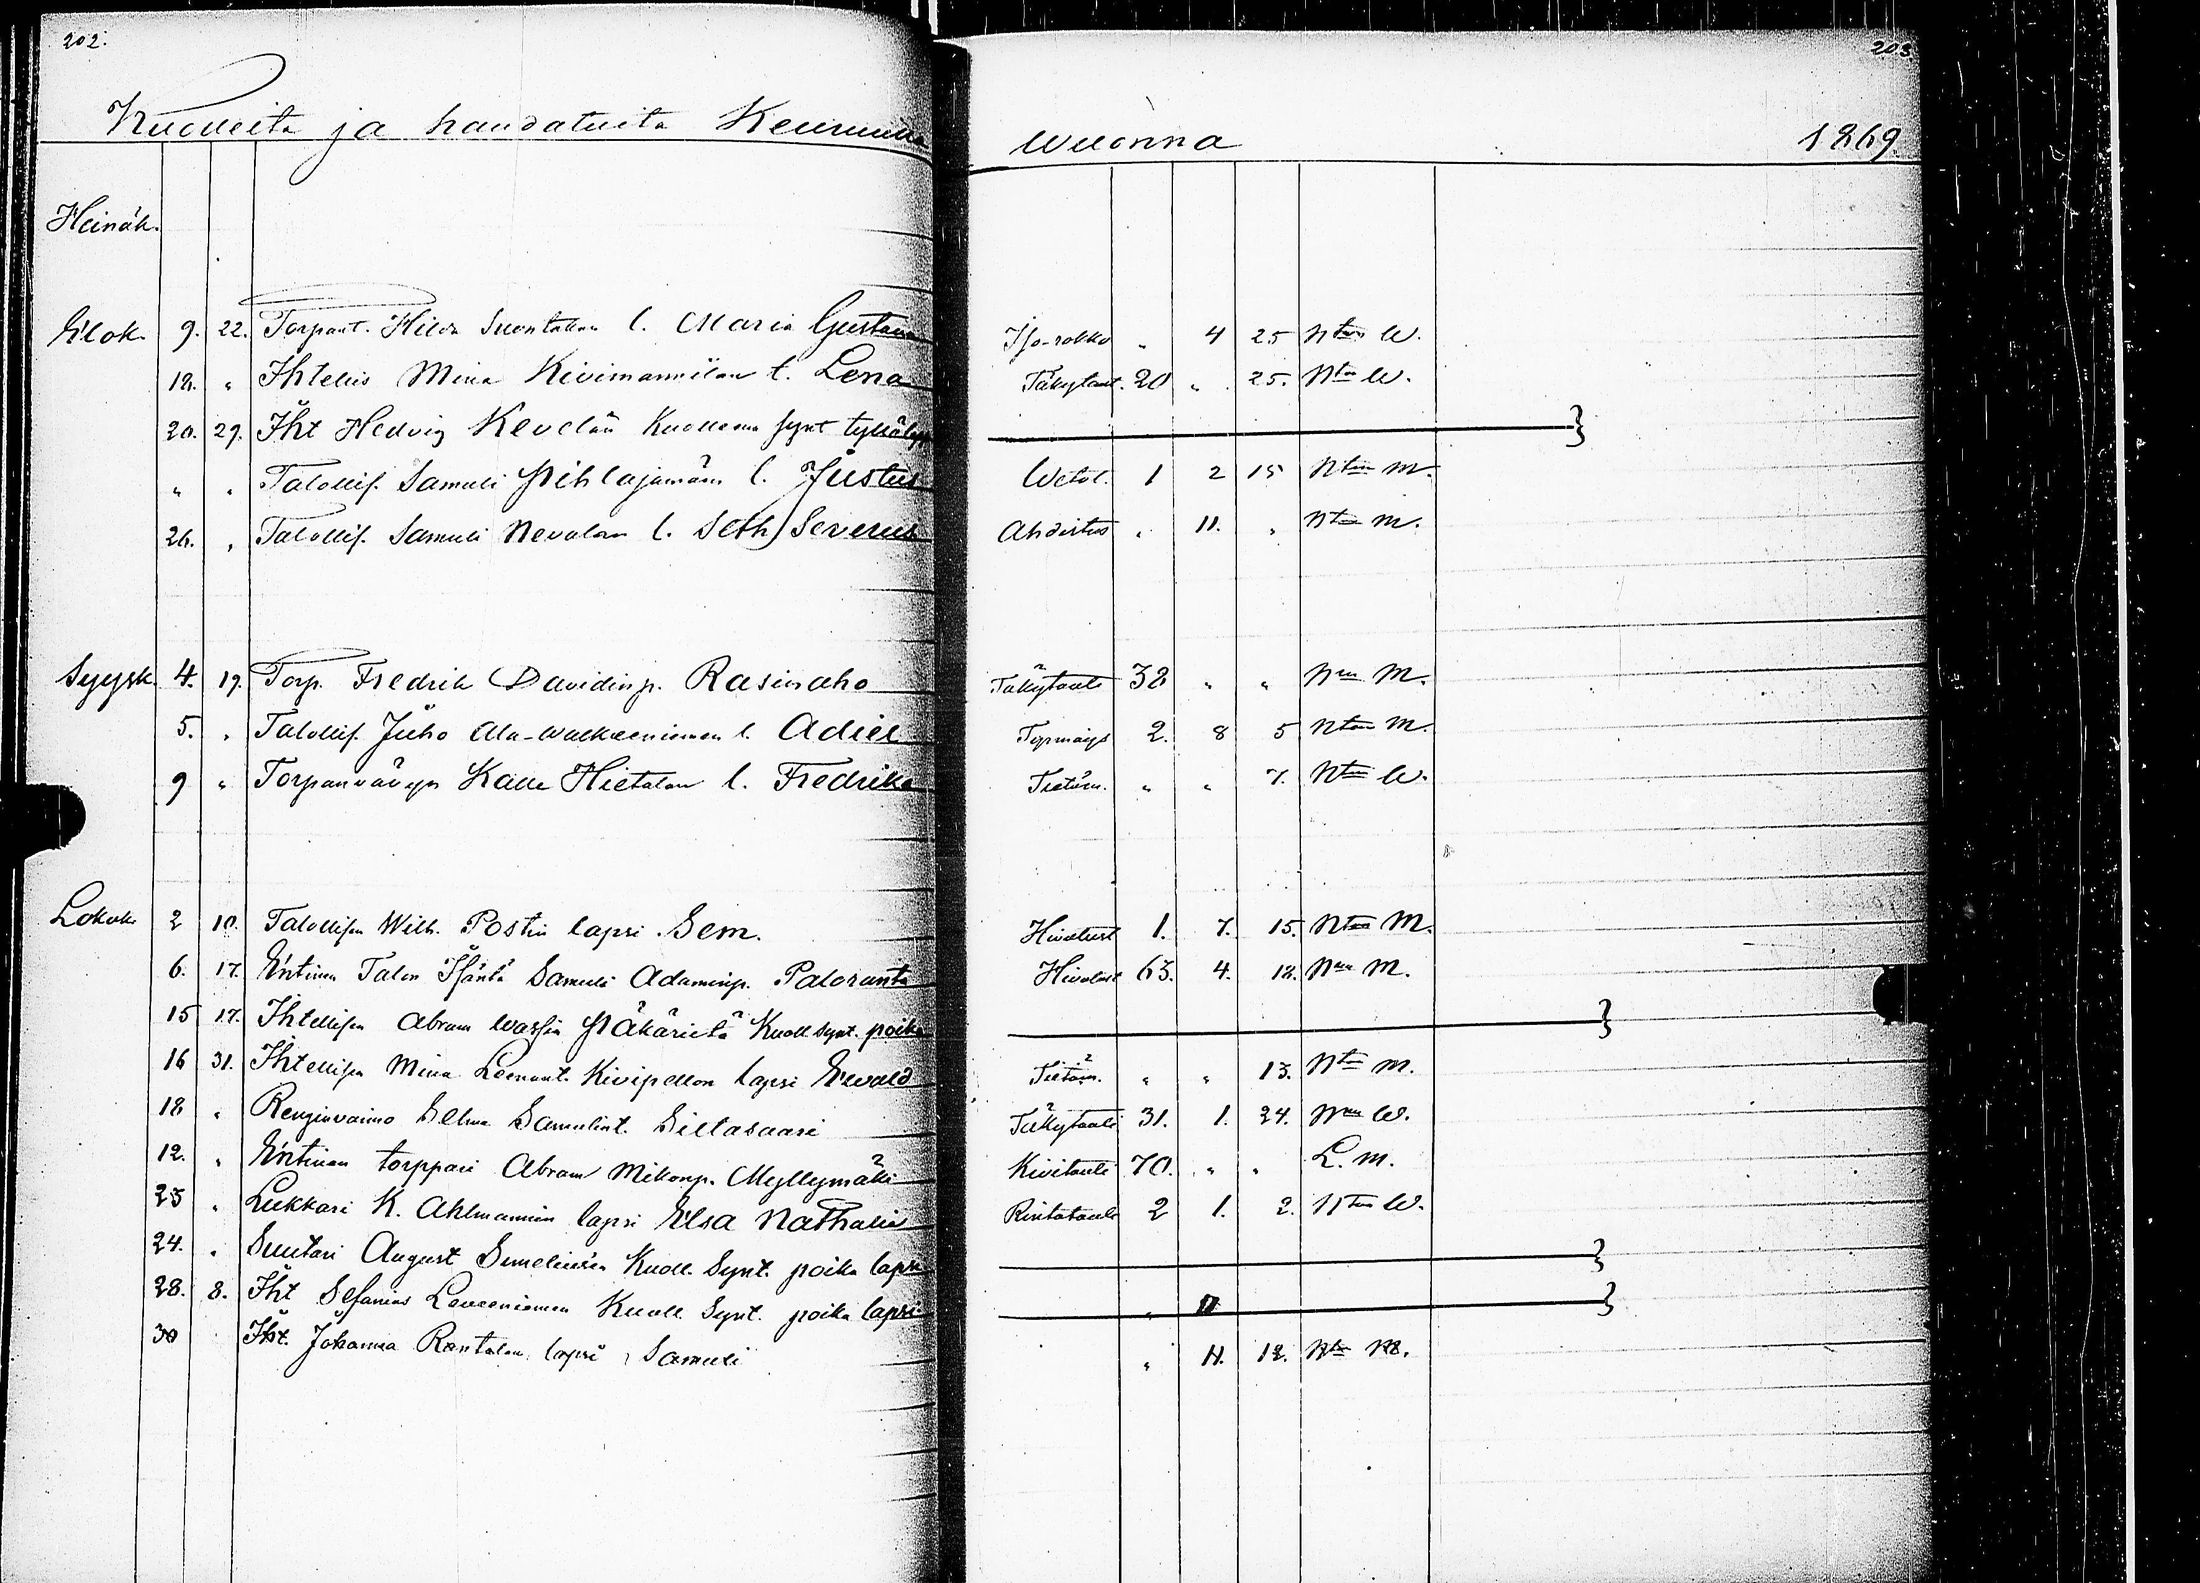 202. 203.
Kuolleita ja haudatuita Keuruulla wuonna 1869.
Heinäk.
Elok. 9. 22. Torpant. Hilda Suontakan l. Maria Gustava Iso-rokko " 4 25 Nton W.
12. " Ihtellis Mina Kivimannilan t. Lena Täkytaut. 20 " 25. Nton W.
20. 29. Iht Hedvig Kevelän Kuollema synt tyttölaps
" " Talollis. Samuli Pihlajamäen l. Justus Wetot. 1 2 15 Nton M.
26. " Talollis. Samuli Nevalan l. Seth Severus Ahdistus " 11. " Nton M.
Syysk. 4. 19. Torp. Fredrik Davidinp. Rasinaho Täkytauti 38 " " Nun M.
5. " Talollis. Juho Ala-Walkeeniemen l. Adiel 2. 8 5 Nton M.
9 " Torpanvävyn Kalle Hietalan l. Fredrika Tietäm. " " 7. Nton W.
Lokok. 2 10. Talollisen Wilh. Postin lapsi Sem. Hivutust 1. 7. 15. Nton M.
6. 17. Entinen Talon Isäntä Samuli Adaminp. Paloranta Hivutust 63. 4. 12. Nun M.
15 17. Ihtellisen Abram Wassin Päkärietä Kuoll. synt. poika
16 31. Ihtellisen Mina Leenant. Kivipellon lapsi Ewald Tietäm. " " 13. Nton M.
18 " Renginvaimo Selma Samulint. Siltasaari Täkytauti 31. 1. 24. Nun W.
12. " Entinen torppari Abram Mikonp. Myllymäki Kivitauti 70. " " L. M.
23 " Lukkari K. Ahlmannin lapsi Elsa Nathalia Rintatauti 2 1. 2. Nton W.
24. " Suutari August Simeliuksen Kuoll. Synt. poika lapsi
28. 8. Iht Stefanus Leveeniemen Kuoll. Synt. poika lapsi "
30 Iht. Johanna Rantalan lapsi Samuli " 11. 12. Nton M.